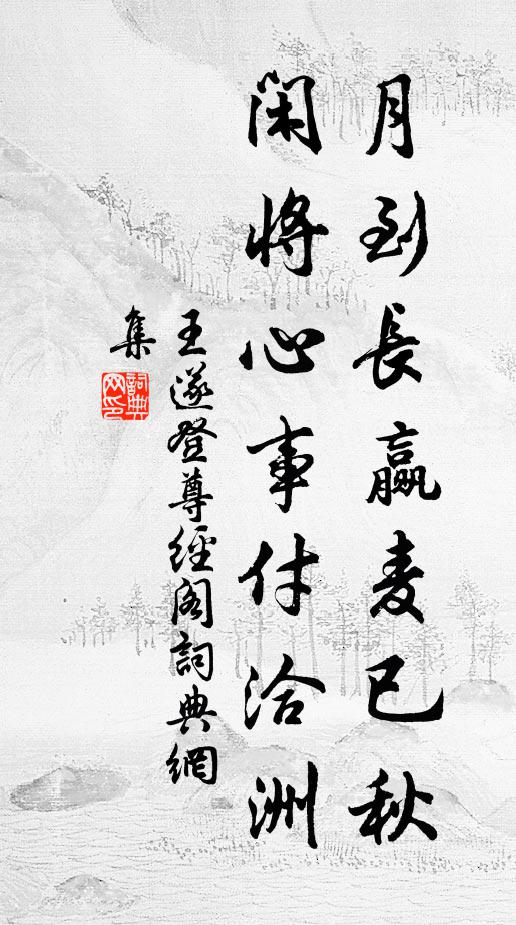 月到長贏麦已秋
閑將心事付洽洲
王遂登尊經阁詞典網
集
詞典
网印